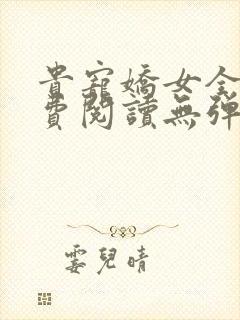 貴寵嬌女全
費閱讀無彈
霎兒晴